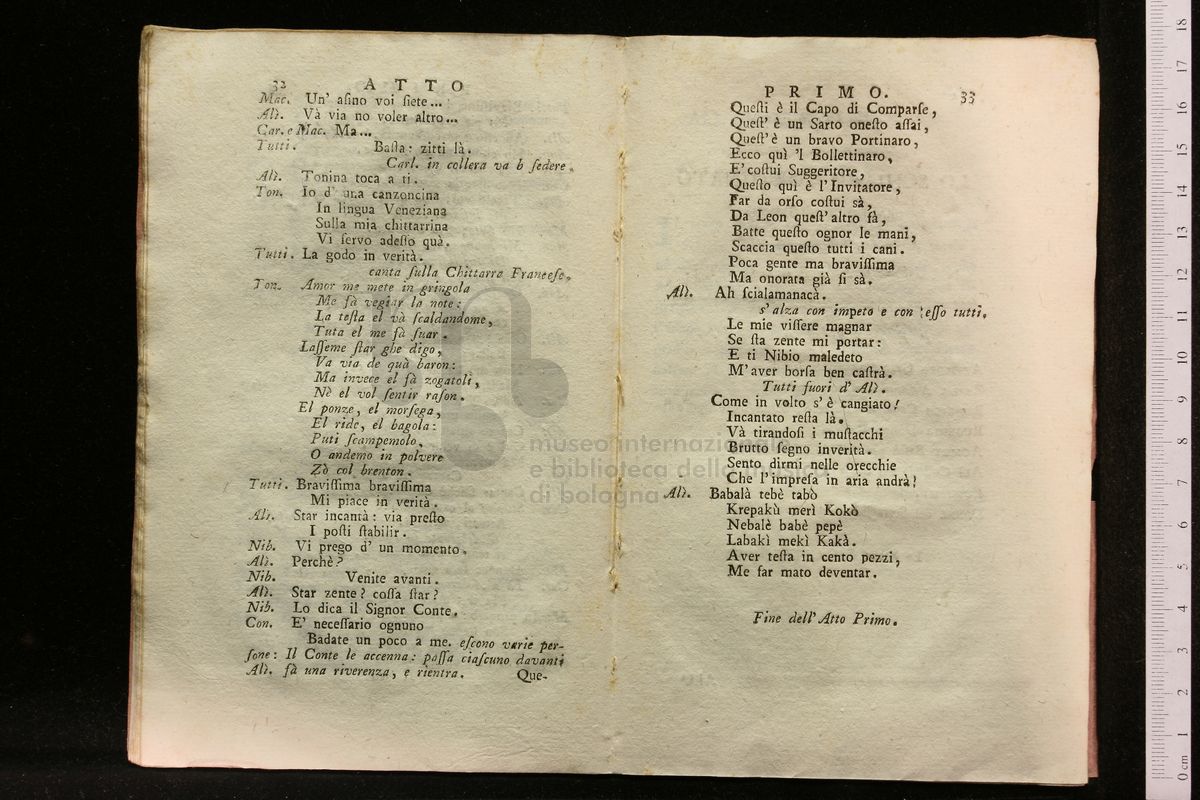 32 ATTO
Mac. Un' asino voi siete...
Alì. Và via no voler altro...
Car. e Mac. Ma...
Tutti. Basta: zitti là.
Carl. in collera va b sedere.
Alì. Tonina toca a ti.
Ton. Io d' una canzoncina
In lingua Veneziana
Sulla mia chittarrina
Vi servo adesso quà.
Tutti. La godo in verità.
canta sulla Chittarra Francese.
Ton. Amor me mete in gringola
Me fà vegiar la note:
La testa el và scaldandome,
Tuta el me fà suar.
Lasseme star ghe digo,
Va via de quà baron:
Ma invece el fà zogatoli,
Nè el vol sentir rason.
El ponze, el morsega,
El ride, el bagola:
Puti scampemolo,
O andemo in polvere
Zò col brenton.
Tutti. Bravissima bravissima
Mi piace in verità.
Alì. Star incantà: via presto
I posti stabilir.
Nib. Vi prego d' un momento.
Alì. Perchè?
Nib. Venite avanti.
Alì. Star zente? cossa star?
Nib. Lo dica il Signor Conte.
Con. E' necessario ognuno
Badate un poco a me. escono varie per-
sone: Il Conte le accenna: passa ciascuno davanti
Alì. fà una riverenza, e rientra. Que-
PRIMO. 33
Questi è il Capo di Comparse,
Quest' è un Sarto onesto assai,
Quest' è un bravo Portinaro,
Ecco quì 'l Bollettinaro,
E' costui Suggeritore,
Questo quì è l' Invitatore,
Far da orso costui sà,
Da Leon quest' altro fà,
Batte questo ognor le mani,
Scaccia questo tutti i cani.
Poca gente ma bravissima
Ma onorata già si sà.
Alì. Ah scialamanacà.
s' alza con impeto e con esso tutti.
Le mie vissere magnar
Se sta zente mi portar:
E ti Nibio maledeto
M' aver borsa ben castrà.
Tutti fuori d' Alì.
Come in volto s' è cangiato!
Incantato resta là.
Và tirandosi i mustacchi
Brutto segno inverità.
Sento dirmi nelle orecchie
Che l' impresa in aria andrà!
Alì. Babalà tebè tabò
Krepakù merì Kokò
Nebalè babè pepè
Labakì mekì Kakà.
Aver testa in cento pezzi,
Me far mato deventar.
Fine dell' Atto Primo.
museo internazionale
e biblioteca della musica
di bologna
0 cm 1 2 3 4 5 6 7 8 9 10 11 12 13 14 15 16 17 18